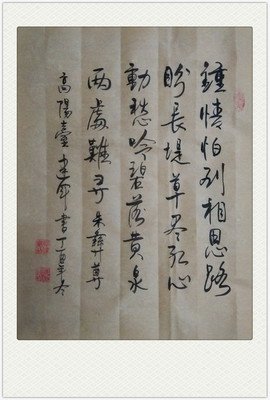 鍾情怕到相思路
盼長堤草尽紅心
動愁吟碧落黄泉
两處難尋 朱彝尊
高陽臺 書丁酉年冬